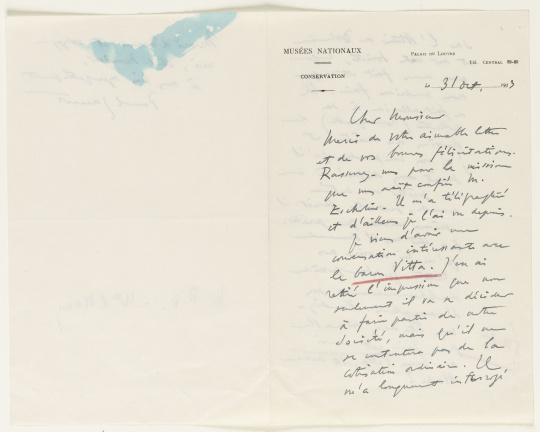 MUSÉES NATIONAUX
PALAIS DU LOUVRE
Tél. CENTRAL
CONSERVATION
31 Oct. 19
Cher Monsieur
Merci de votre aimable lettre
et de vos bonnes félicitations.
Rassurez-vous pour la mission
que vous avait confiée M.
Il m'a télégraphié
et d'ailleurs je l'ai vu depuis.
Je viens d'avoir une
conversation intéressante avec
le baron Vitta. J'en ai
retiré l'impression que non
seulement il va se décider
à faire partie de votre
Société, mais qu'il ne
se contentera pas de la
cotisation ordinaire. Il
m'a longuement interrogé,